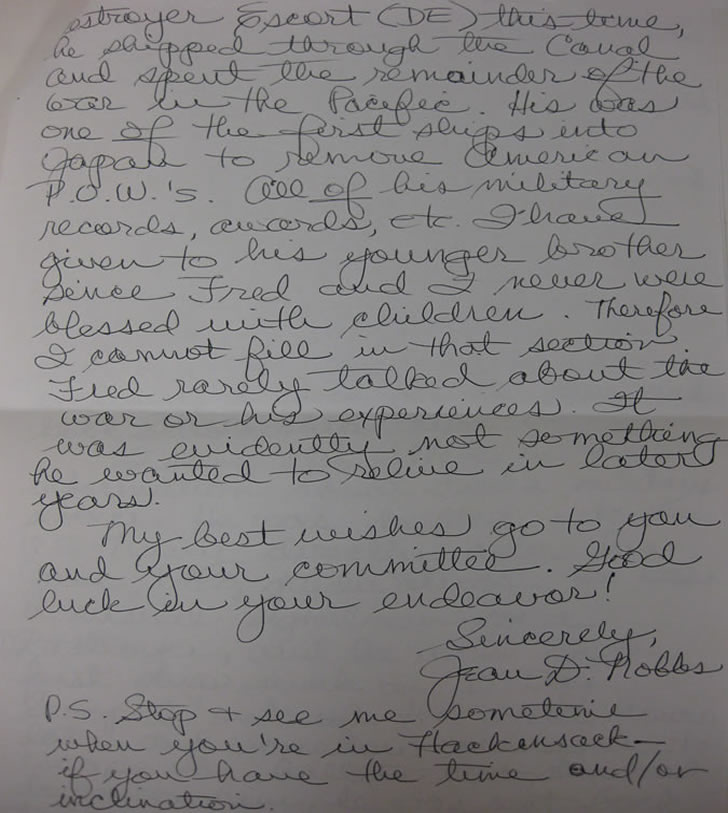 estroyer Escort (DE) this time,
he shipped through the Canal
and spent the remainder of the
war in the Pacific. His was
one of the first ships into
Japan to remove American
P.O.W.'s. All of his military
records, awards, etc. I have
given to his younger brother
since Fred and I never were
blessed with children. Therefore
I cannot fill in that section.
Fred rarely talked about the
war or his experiences. It
was evidently not something
he wanted to relive in later
years.
My best wishes go to you
and your committee. Good
luck in your endeavor!
Sincerely,
Jean D. Nobbs
P.S. Stop + see me sometime
when you're in Hackensack—
if you have the time and/or
inclination.